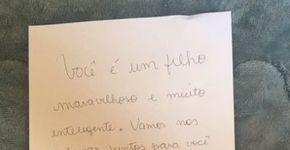 Você é um filho
maravilhoso e muito
inteligente. Vamos nos
juntos para você